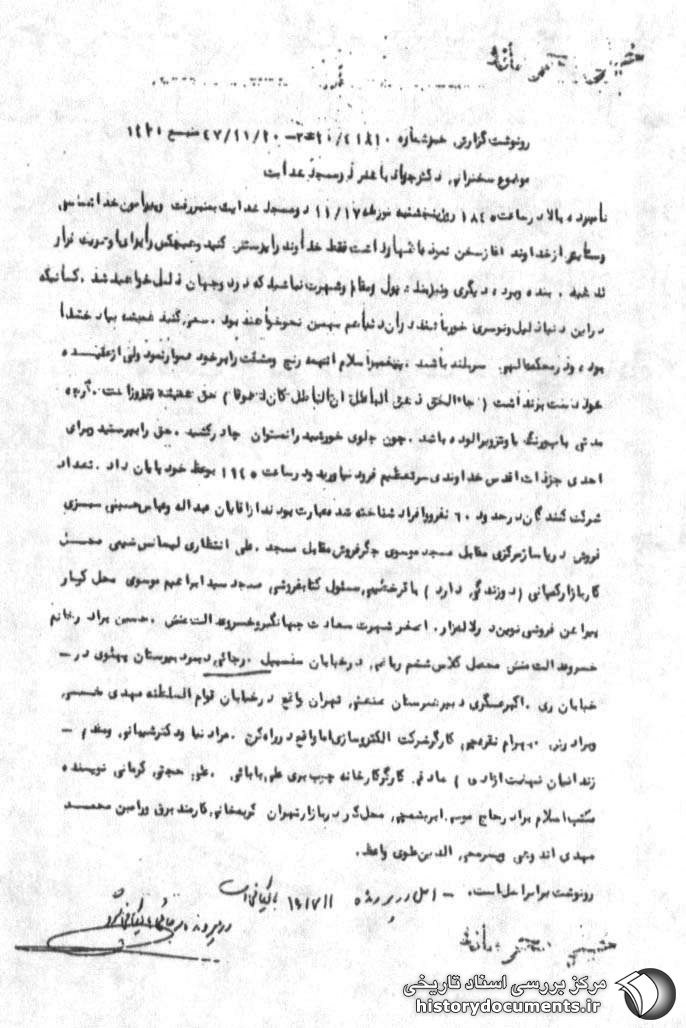 خیلی محرمانه
رونوشت گزارش خبر شماره ۴۱۸۱۰/۲۰ه۳ – ۴۷/۱۱/۲۰ منبع ۱۴۲۱
موضوع سخنرانی دکتر جواد باهنر در مسجد هدایت
نامبرده بالا در ساعت ۱۸۴۵ روز پنجشنبه مورخه ۱۱/۱۷ در مسجد هدایت بمنبر رفت و پیرامون خداشناسی
و ستایش از خداوند آغاز سخن نمود با اظهار داشت فقط خداوند را پرستش کنید و هیچکس را برای او شریک قرار
ندهید . بنده و برده دیگری و نیز بنده پول و مقام و شهرت نباشید که در دو جهان ذلیل خواهید شد . کسانیکه
در این دنیا ذلیل و توسری خور باشند در آن دنیا هم بهمین نحو خواهند بود . سعی کنید همیشه بیاد خدا
بوده و در محکمه الهی سربلند باشید . پیغمبر اسلام اینهمه رنج و مشقت را بر خود هموار نمود ولی از عقیده
خود دست برنداشت ( جاءالحق و زهق الباطل ان الباطل کان زهوقا ) حق همیشه پیروز است . گرچه
مدتی با نیرنگ و تزویر آلوده باشد . چون جلوی خورشید را نمیتوان چادر کشید . حق را بپرستید و برای
احدی جز ذات اقدس خداوندی سر تعظیم فرود نیاورید و در ساعت ۱۹۴۵ بوعظ خود پایان داد . تعداد
شرکت کنندگان در حدود ۶۰ نفر و افراد شناخته شده عبارت بودند از آقایان عبداله و عباس حسینی سبزی
فروش در پاساژ مرکزی مقابل مسجد موسوی جگرفروش مقابل مسجد . علی انتظاری لیسانس شیمی محل
کار بازار کمپانی ( دوزندگی دارد ) باقر خشیمی مسئول کتابفروشی مسجد سید ابراهیم موسوی محل کار
پیراهن فروشی نوین در لاله زار . اصغر شهرت سعادت جهانگیر و خسرو عدالت منش . حسین برادر رضا نیم
خسرو عدالت منش محصل کلاس ششم ریاضی در خیابان سلسبیل . رجائی دبیر دبیرستان پهلوی در –
خیابان ری . اکبر عسگری دبیر هنرستان صنعتی تهران واقع در خیابان قوام السلطنه مهدی خمسی
و برادرش . بهرام نقره‌چی کارگر شرکت الکترو سازی اما واقع در راه کرج . مراد نیا و دکتر شیبانی و مقدم –
زندانیان نهضت آزادی ) صادقی کارگر کارخانه چوب بری علی بابائی . علی حجتی کرمانی نویسنده
مکتب اسلام برادر حاج موسی ابریشمچی محل کار در بازار تهران کریمخانی کارمند برق ورامین محمد
مهدی اندوهی و پسر محی الدین علوی واعظ .
رونوشت برابر اصل است . – اصل در پرونده ۱۴/۷۱۱ بایگانی است
در پرونده بایگانی شود
خیلی محرمانه
مرکز بررسی اسناد تاریخی
historydocuments.ir